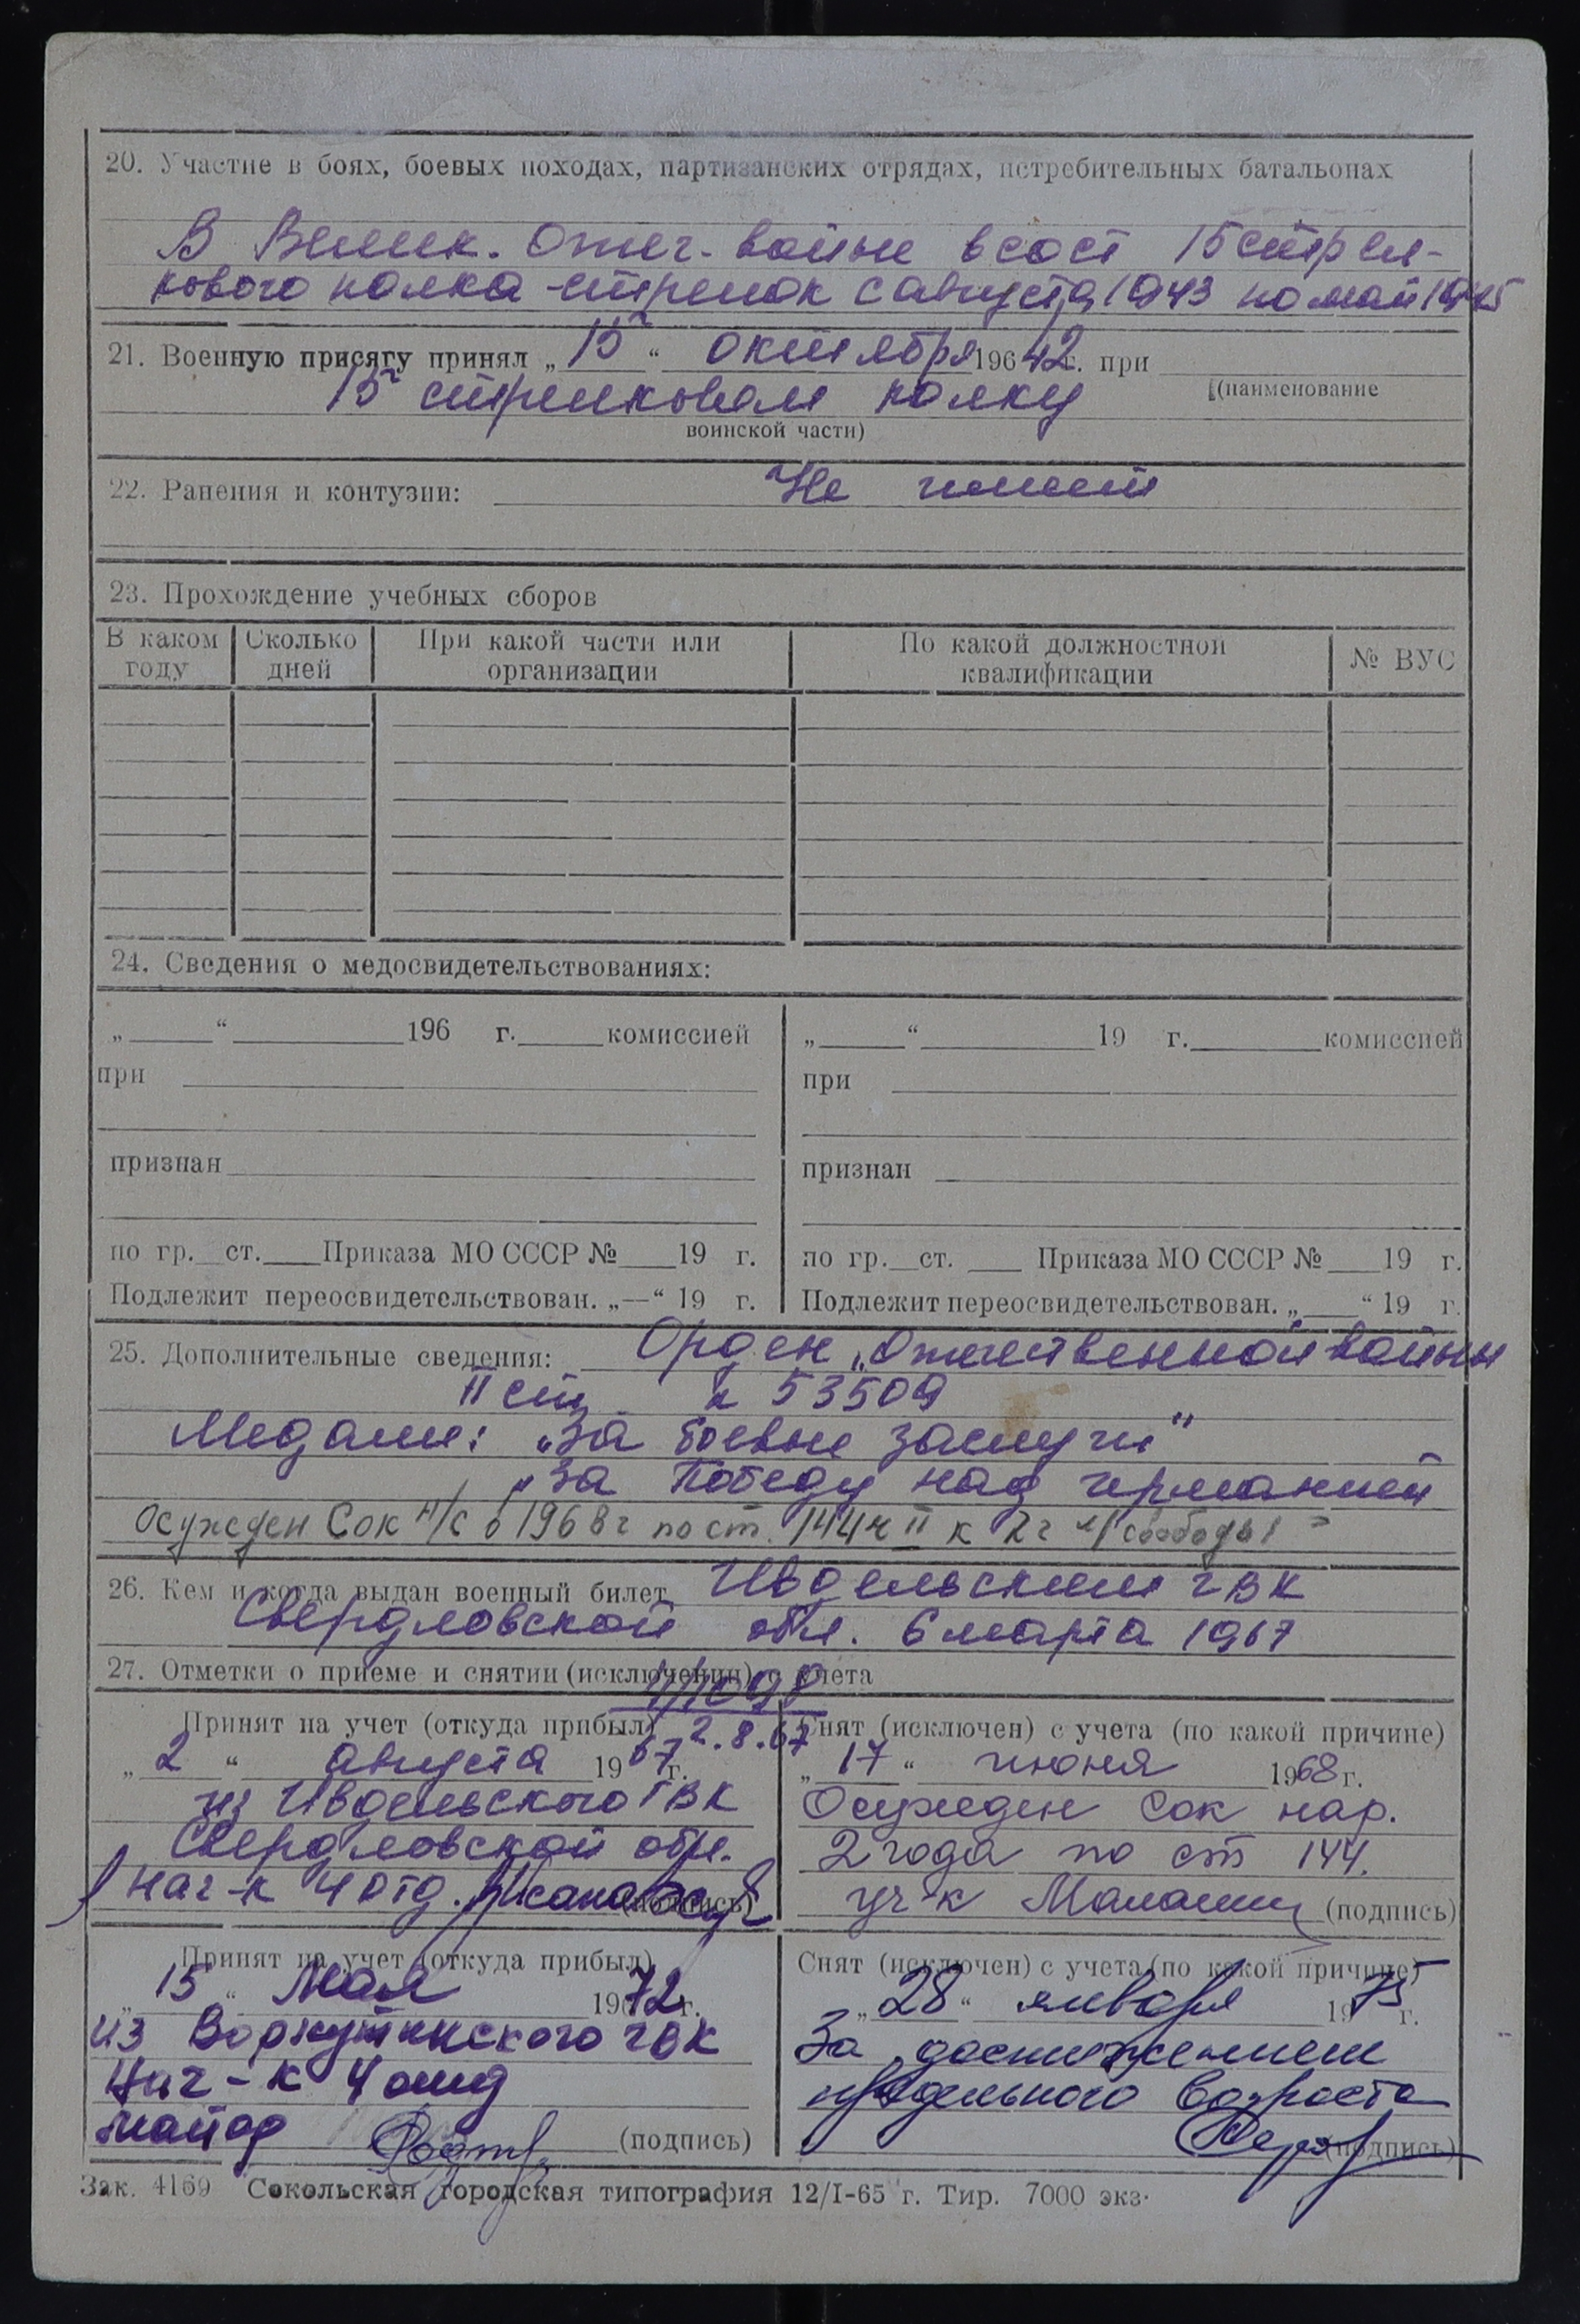 20. Участие в боях, боевых походах, партизанских отрядах, истребительных батальонах
В Велик. Отеч. войне в сост 15 стрел-
кового полка - стрелок с августа 1943 по май 1945
21. Военную присягу принял „ 15 “ октября 196 42 г. при
15 стрелковом полку (наименование
воинской части)
22. Ранения и контузии: Не имеет
23. Прохождение учебных сборов
В каком году | Сколько дней | При какой части или организации | По какой должностной квалификации | № ВУС
24. Сведения о медосвидетельствованиях:
„ “ 196 г. комиссией
при
признан
по гр. ст. Приказа МО СССР № 19 г.
Подлежит переосвидетельствован. „—“ 19 г.
„ “ 19 г. комиссией
при
признан
по гр. ст. Приказа МО СССР № 19 г.
Подлежит переосвидетельствован. „ “ 19 г.
25. Дополнительные сведения: Орден „Отечественной войны
II ст 53509
Медали: „За боевые заслуги"
„За Победу над германией
Осужден Сок н/с в 1968 г по ст. 144 ч II к 2 г л/свободы
26. Кем и когда выдан военный билет Ивдельским ГВК
Свердловской обл. 6 марта 1967
27. Отметки о приеме и снятии (исключении) с учета
Принят на учет (откуда прибыл) 2.8.67
„ 2 “ августа 1967 г.
из Ивдельского ГВК
Свердловской обл.
Нач-к 4 отд. (подпись)
Снят (исключен) с учета (по какой причине)
„ 17 “ июня 1968 г.
Осужден Сок нар.
2 года по ст 144.
(подпись)
Принят на учет (откуда прибыл)
„ 15 “ Мая 1972 г.
из Воркутинского ГВК
Нач-к 4 отд
майор (подпись)
Снят (исключен) с учета (по какой причине)
„ 28 “ января 1975 г.
За достижением
предельного возраста
(подпись)
Зак. 4169 Сокольская городская типография 12/I-65 г. Тир. 7000 экз.